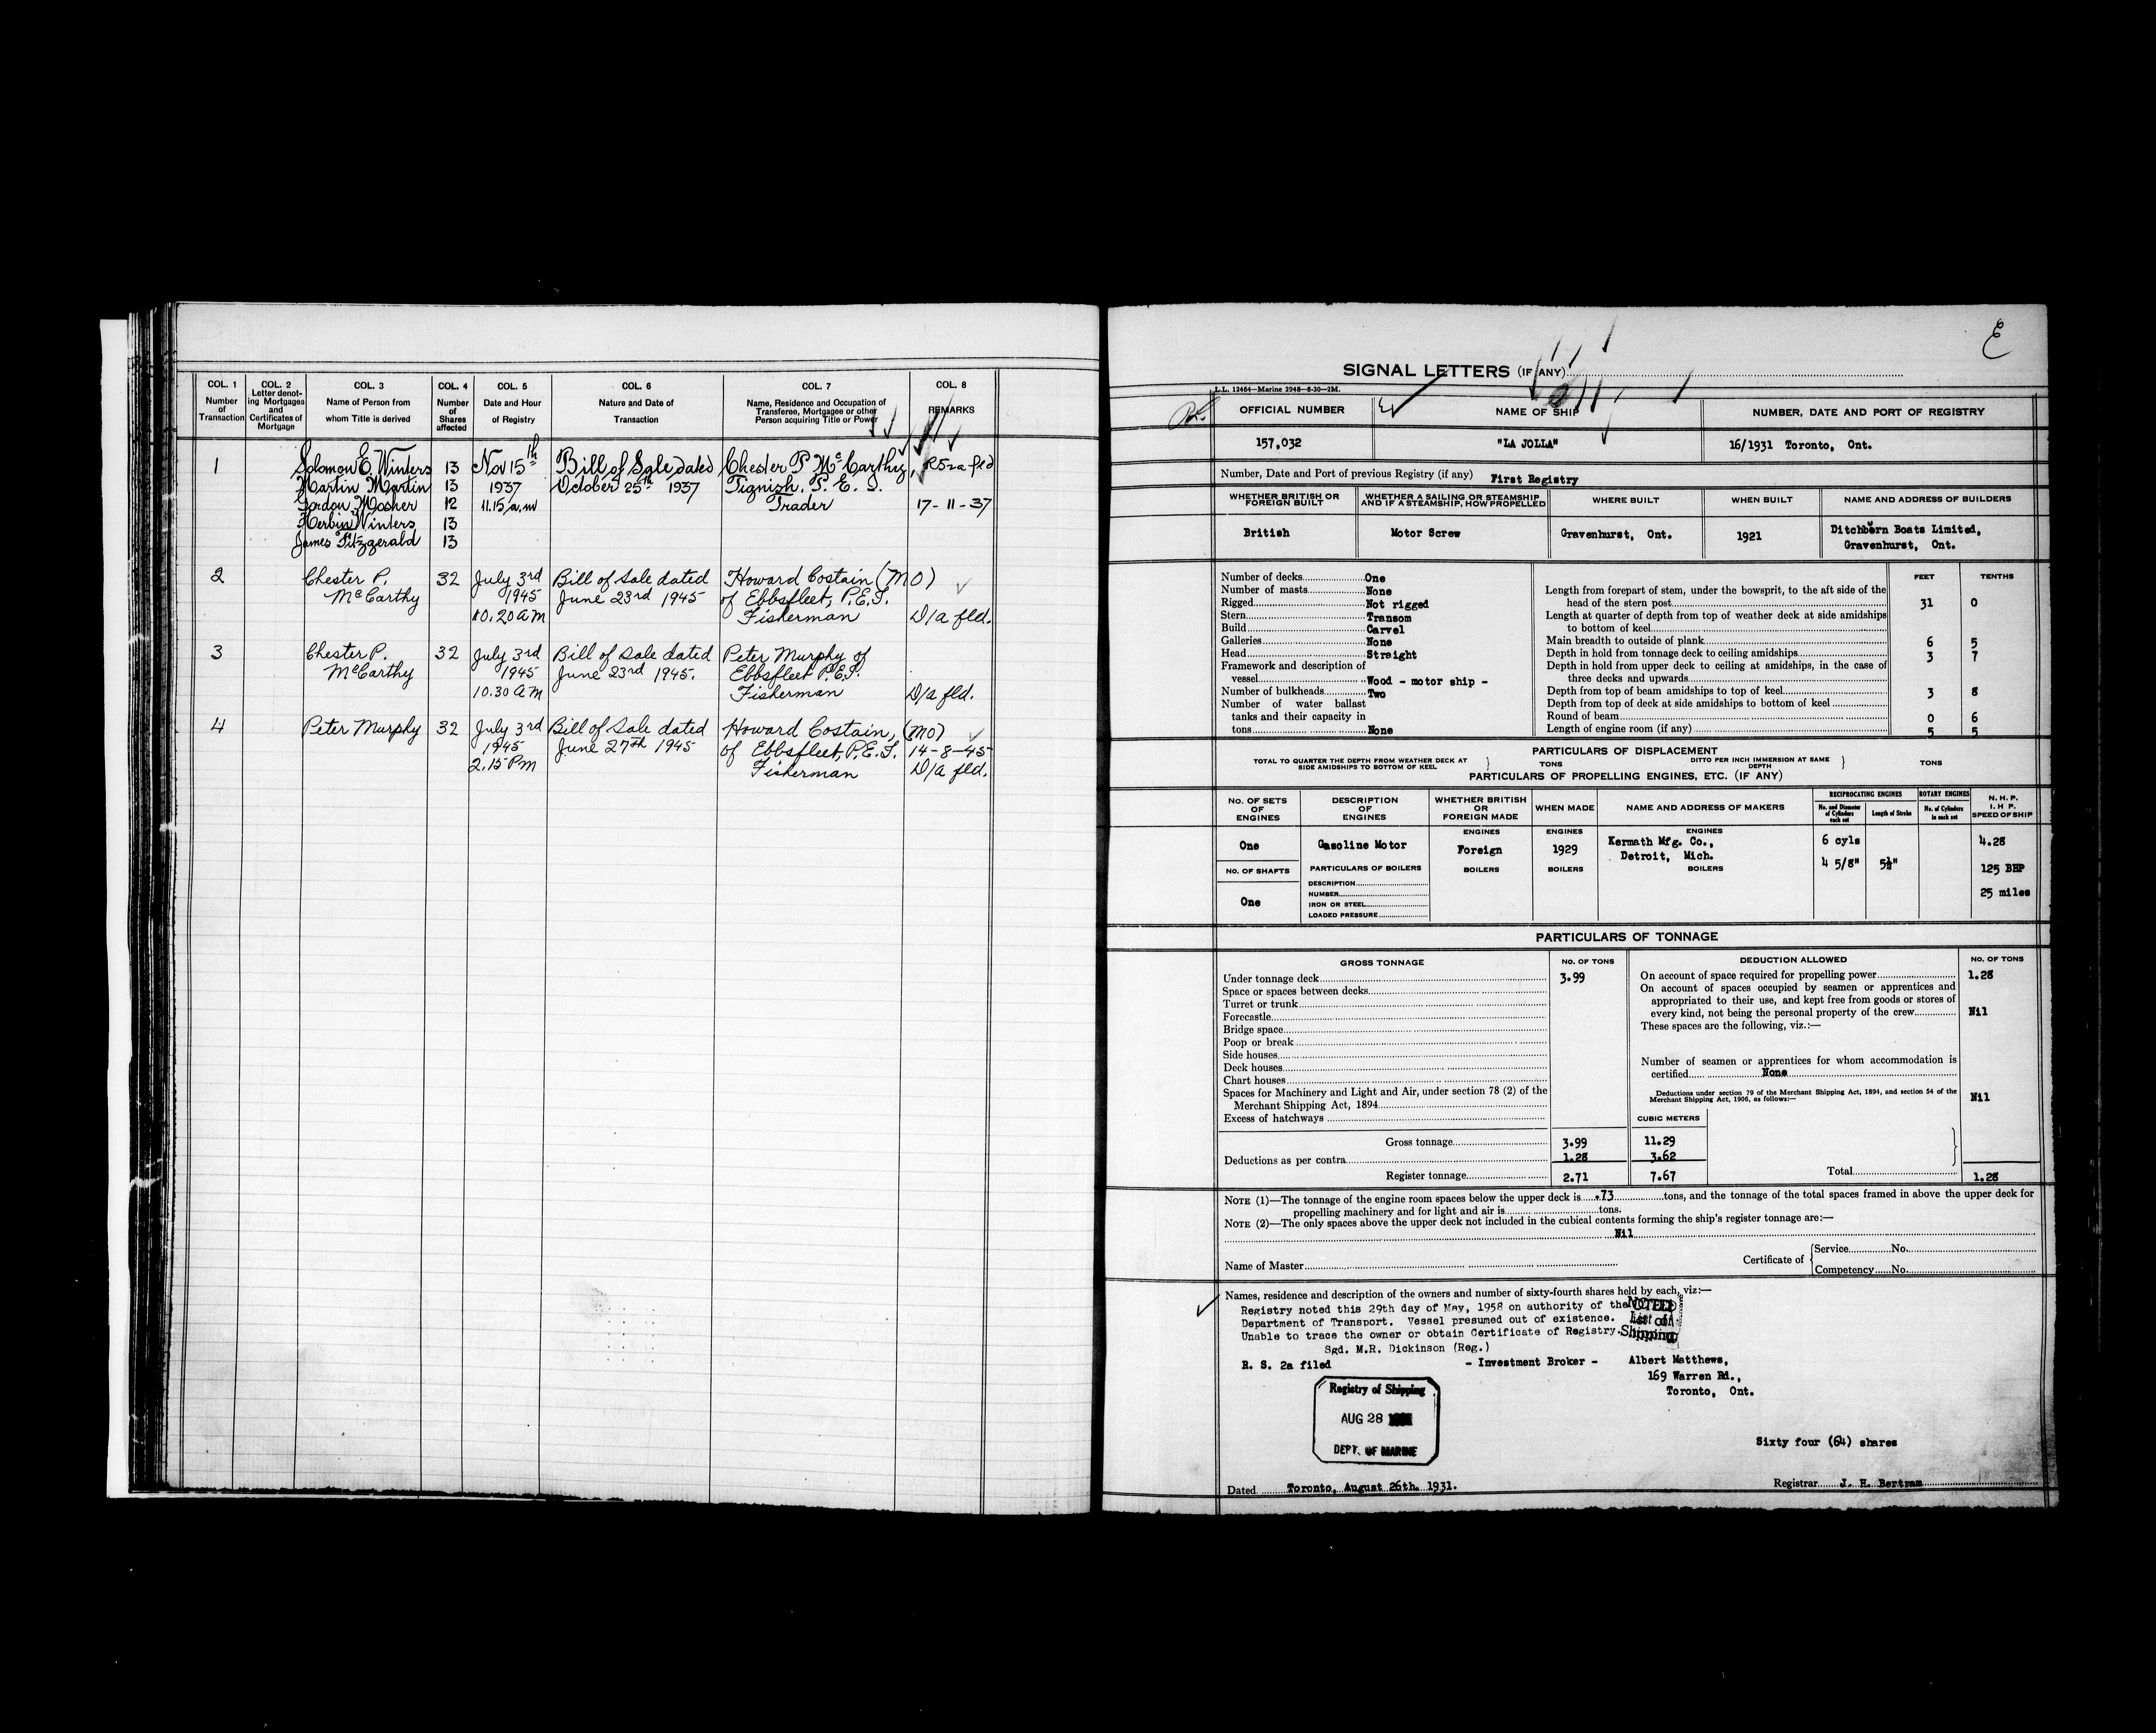 COL. 1
Number
of
Transaction
COL. 2
Letter denot-
ing Mortgages
and
Certificates of
Mortgage
COL. 3
Name of Person from
whom Title is derived
COL. 4
Number
of
Shares
affected
COL. 5
Date and Hour
of Registry
COL. 6
Nature and Date of
Transaction
COL. 7
Name, Residence and Occupation of
Transferee, Mortgagee or other
Person acquiring Title or Power
COL. 8
REMARKS
1 Solomon E. Winters 13 Nov 15th Bill of Sale dated Chester P. McCarthy, RS2a fld
Martin Martin 13 1937 October 25th 1937 Tignish, P. E. I.
Gordon Mosher 12 11.15 a.m Trader 17-11-37
Herbin Winters 13
James Fitzgerald 13
2 Chester P. 32 July 3rd Bill of Sale dated Howard Costain (MO)
McCarthy 1945 June 23rd 1945 of Ebbsfleet, P.E.I.
10.20 AM Fisherman D/a fld.
3 Chester P. 32 July 3rd Bill of Sale dated Peter Murphy of
McCarthy 1945 June 23rd 1945. Ebbsfleet P.E.I.
10.30 AM Fisherman D/a fld.
4 Peter Murphy 32 July 3rd Bill of Sale dated Howard Costain, (MO)
1945 June 27th 1945 of Ebbsfleet, P.E.I. 14-8-45
2.15 PM Fisherman D/a fld.
E
SIGNAL LETTERS (IF ANY)
L.L. 12464—Marine 2948—8-30—2M.
OFFICIAL NUMBER NAME OF SHIP NUMBER, DATE AND PORT OF REGISTRY
157,032 "LA JOLLA" 16/1931 Toronto, Ont.
Number, Date and Port of previous Registry (if any) First Registry
WHETHER BRITISH OR
FOREIGN BUILT
WHETHER A SAILING OR STEAMSHIP
AND IF A STEAMSHIP, HOW PROPELLED
WHERE BUILT
WHEN BUILT
NAME AND ADDRESS OF BUILDERS
British Motor Screw Gravenhurst, Ont. 1921 Ditchburn Boats Limited,
Gravenhurst, Ont.
Number of decks One
Number of masts None
Rigged Not rigged
Stern Transom
Build Carvel
Galleries None
Head Straight
Framework and description of
vessel Wood - motor ship -
Number of bulkheads Two
Number of water ballast
tanks and their capacity in
tons None
FEET TENTHS
Length from forepart of stem, under the bowsprit, to the aft side of the
head of the stern post 31 0
Length at quarter of depth from top of weather deck at side amidships
to bottom of keel
Main breadth to outside of plank 6 5
Depth in hold from tonnage deck to ceiling amidships 3 7
Depth in hold from upper deck to ceiling at amidships, in the case of
three decks and upwards
Depth from top of beam amidships to top of keel 3 8
Depth from top of deck at side amidships to bottom of keel
Round of beam 0 6
Length of engine room (if any) 5 5
PARTICULARS OF DISPLACEMENT
TOTAL TO QUARTER THE DEPTH FROM WEATHER DECK AT
SIDE AMIDSHIPS TO BOTTOM OF KEEL
TONS
DITTO PER INCH IMMERSION AT SAME
DEPTH
TONS
PARTICULARS OF PROPELLING ENGINES, ETC. (IF ANY)
No. OF SETS
OF
ENGINES
DESCRIPTION
OF
ENGINES
WHETHER BRITISH
OR
FOREIGN MADE
WHEN MADE
NAME AND ADDRESS OF MAKERS
RECIPROCATING ENGINES
No. and Diameter
of Cylinders
each set
Length of Stroke
ROTARY ENGINES
No. of Cylinders
in each set
N. H. P.
I. H P.
SPEED OF SHIP
ENGINES ENGINES ENGINES
One Gasoline Motor Foreign 1929 Kermath Mfg. Co., 6 cyls 4.28
Detroit, Mich.
No. OF SHAFTS PARTICULARS OF BOILERS BOILERS BOILERS BOILERS 4 5/8" 5½" 125 BHP
One
DESCRIPTION
NUMBER
IRON OR STEEL
LOADED PRESSURE
25 miles
PARTICULARS OF TONNAGE
GROSS TONNAGE No. OF TONS
Under tonnage deck 3.99
Space or spaces between decks
Turret or trunk
Forecastle
Bridge space
Poop or break
Side houses
Deck houses
Chart houses
Spaces for Machinery and Light and Air, under section 78 (2) of the
Merchant Shipping Act, 1894
Excess of hatchways
Gross tonnage 3.99 11.29
Deductions as per contra 1.28 3.62
Register tonnage 2.71 7.67
DEDUCTION ALLOWED No. OF TONS
On account of space required for propelling power 1.28
On account of spaces occupied by seamen or apprentices and
appropriated to their use, and kept free from goods or stores of
every kind, not being the personal property of the crew Nil
These spaces are the following, viz.:—
Number of seamen or apprentices for whom accommodation is
certified None
Deductions under section 79 of the Merchant Shipping Act, 1894, and section 54 of the
Merchant Shipping Act, 1906, as follows:— Nil
CUBIC METERS
Total 1.28
NOTE (1)—The tonnage of the engine room spaces below the upper deck is .73 tons, and the tonnage of the total spaces framed in above the upper deck for
propelling machinery and for light and air is tons.
NOTE (2)—The only spaces above the upper deck not included in the cubical contents forming the ship's register tonnage are:—
Nil
Name of Master
Certificate of
Service No.
Competency No.
Names, residence and description of the owners and number of sixty-fourth shares held by each, viz:—
Registry noted this 29th day of May, 1958 on authority of the
Department of Transport. Vessel presumed out of existence.
Unable to trace the owner or obtain Certificate of Registry.
Sgd. M.R. Dickinson (Reg.)
NOTED
List of
Shipping
R. S. 2a filed - Investment Broker - Albert Matthews,
169 Warren Rd.,
Toronto, Ont.
Registry of Shipping
AUG 28
DEPT. OF MARINE
Sixty four (64) shares
Dated Toronto, August 26th. 1931.
Registrar J. H. Bertram